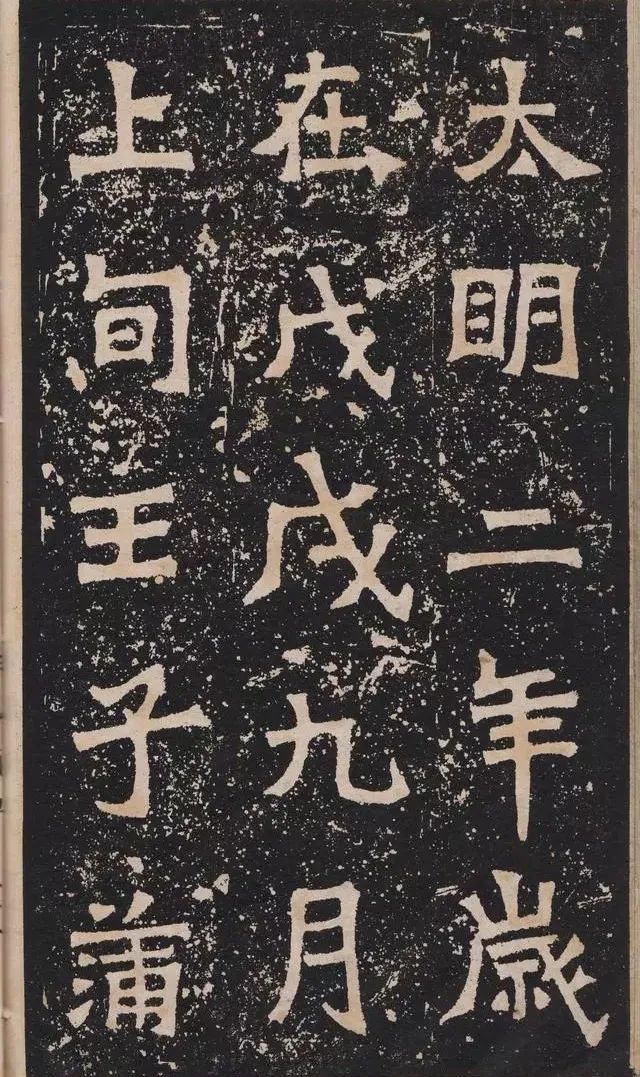 太明二年歲
在戊戌九月
上旬壬子蒲